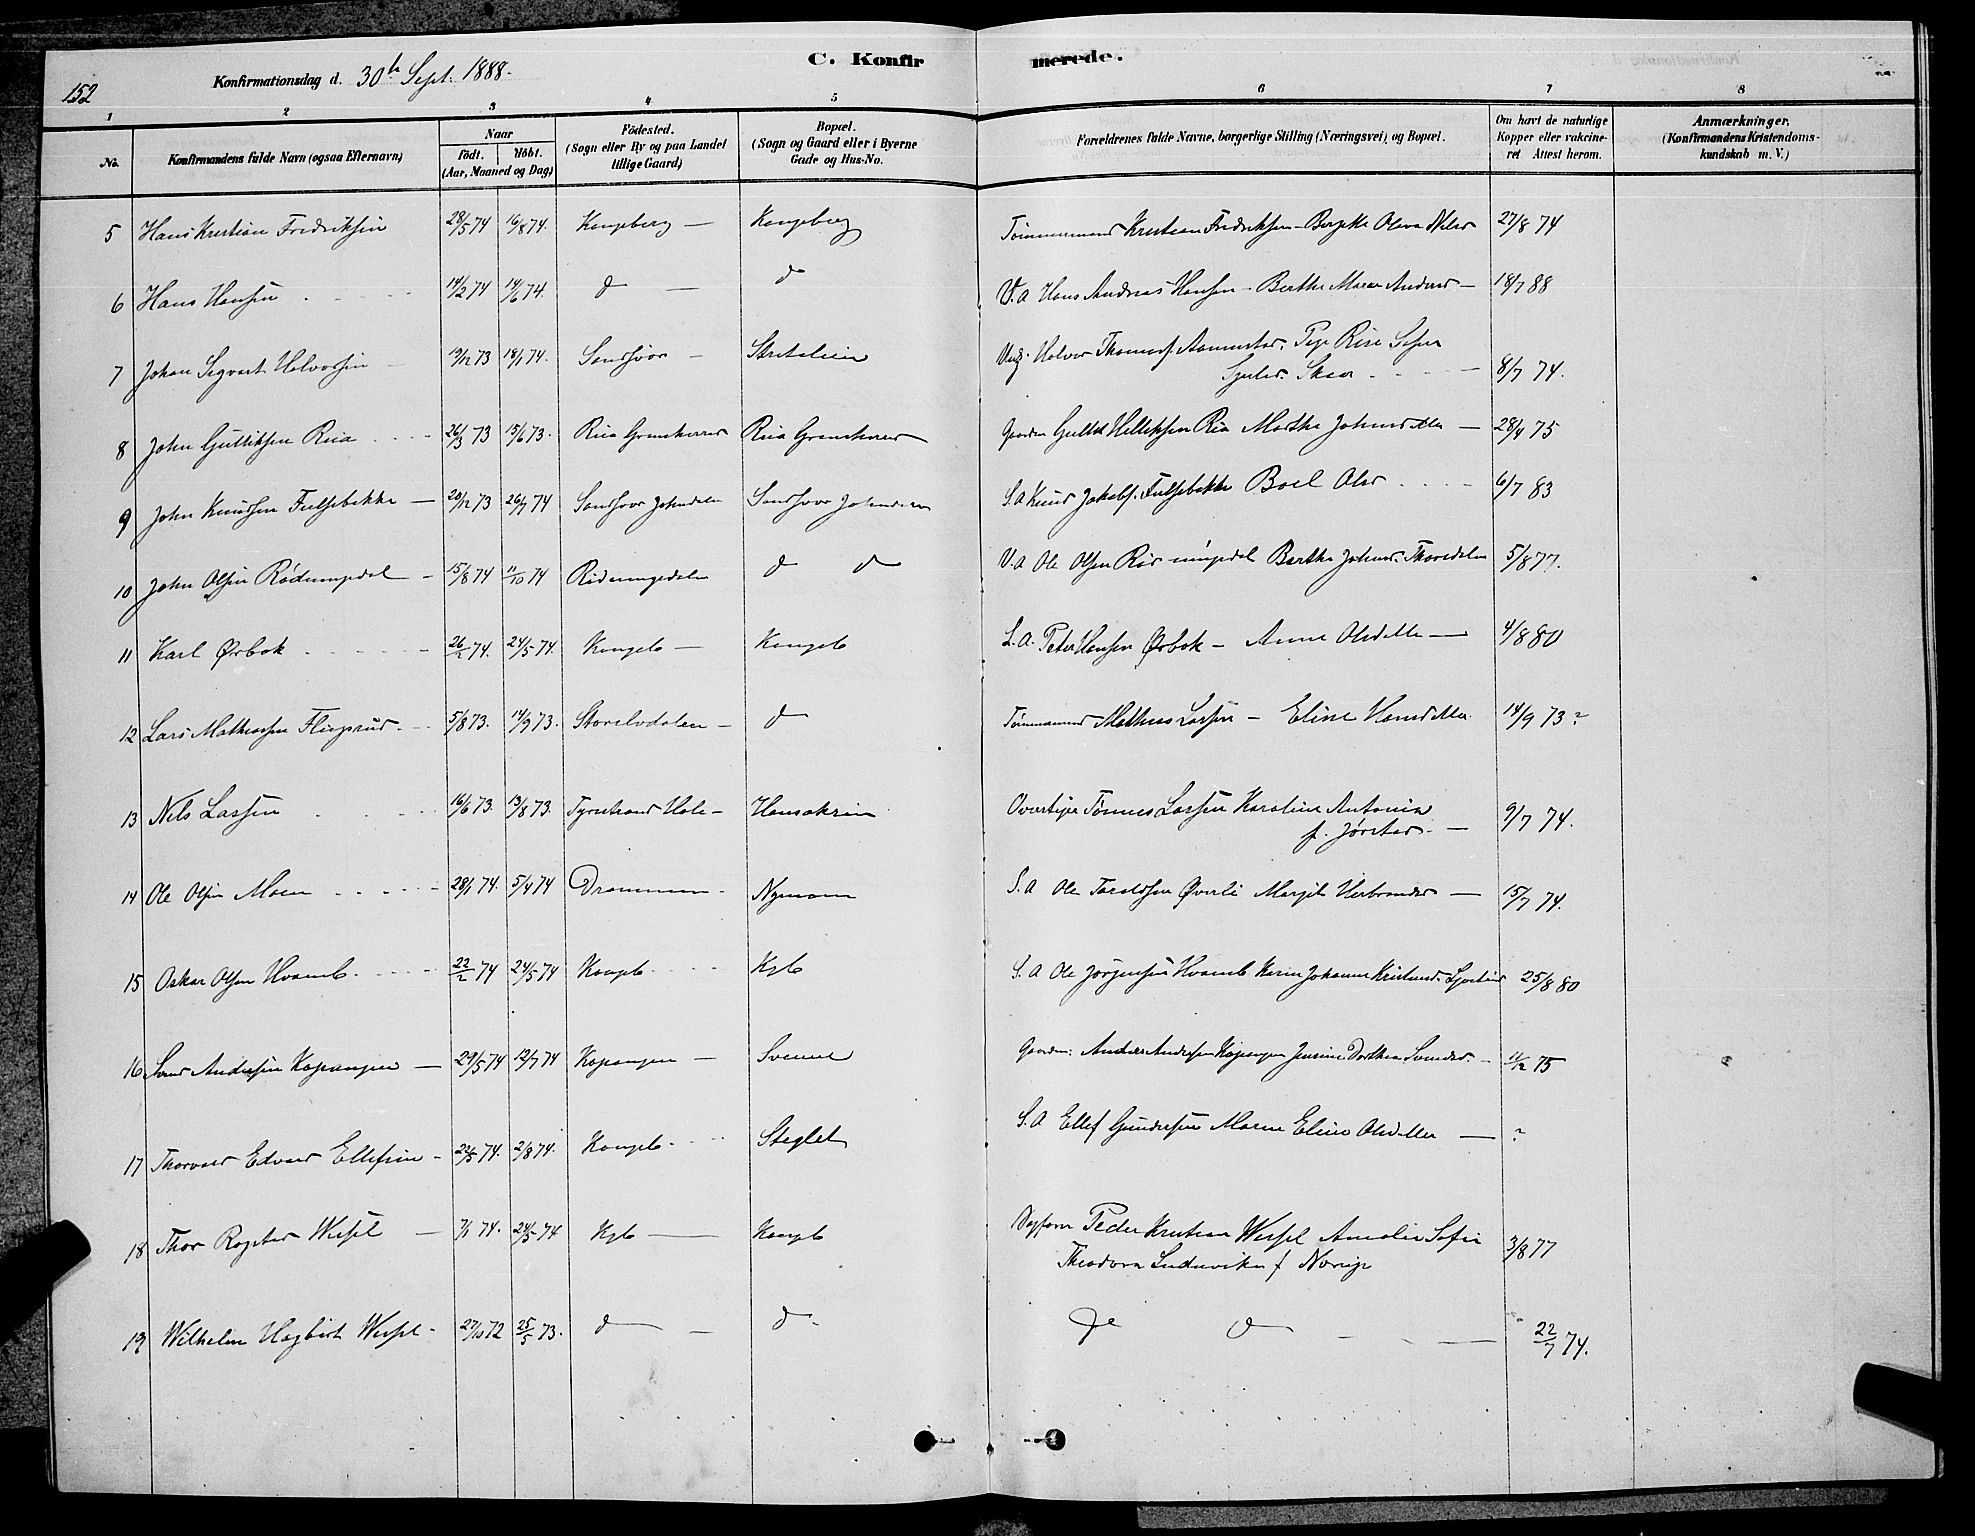 152
Konfirmationsdag d. 30th Sept. 1888.
C. Konfirmerede.
1 2 3 4 5 6 7 8
No.
Konfirmandens fulde Navn (ogsaa Efternavn)
Naar
födt. döbt.
(Aar, Maaned og Dag)
Födested.
(Sogn eller By og paa Landet
tillige Gaard)
Bopæl.
(Sogn og Gaard eller i Byerne
Gade og Hus-No.
Forældrenes fulde Navne, borgerlige Stilling (Næringsvei) og Bopæl.
Om havt de naturlige
Kopper eller vakcine-
ret Attest herom.
Anmærkninger.
(Konfirmandens Kristendoms-
kundskab m. V.)
5 Hans Kristian Fredriksen 28/5 74 16/8 74. Kongsberg — Kongsberg Tømmermand Kristian Fredriksen - Olava Nilsd 27/8 74
6 Hans Hansen 14/2 74 14/6 74. d — do V.A Hans Andreas Hansen - Berthe Maren Andersd — 18/7 88
7 Johan Sigvart Halvorsen 19/12 73 18/1 74. Sandsvær — Halvor Thomasf.
8/7 74.
8 John Gulliksen Ria 26/3 73 15/6 73. Ria Grenskoven Ria Grenskoven Gaardm Gullik Helleksen Ria Marthe Johnsdtter — 28/4 75
9 John Knudsen Fulsebakke — 20/12 73 26/7 74 Sandsvær Jondalen Sandsvær Jondalen S.A Knud Jakobs. Fulsebakke Boel Olsd 6/7 83
10 John Olsen Rødningsdal — 15/8 74 11/10 74 Rødningsdalen d d V.A Ole Olsen Rødningsdal Berthe Johnsd. Thorsdalen 5/8 77.
11 Karl Ørbok 26/2 74. 24/5 74. Kongsb — Kongsb S.A. Peter Hansen Ørbok — Anne Olsdtter — 4/8 80
12 Lars Mathiassen Flugsrud 5/8 73. 14/9 73. Storelvdalen — d Tømmermand Mathias Larsen — Eline Hansdtter 14/9 73?
13 Nils Larsen 16/6 73. 13/8 73. Tyristrand Hole — Tønnes Larsen Karoline Antonia
f. Jørstad. — 9/7 74.
14 Ole Olsen Moen 28/1 74. 5/4 74 Drammen Nymoen S.A Ole Øverli Margit Herbrandsd — 15/7 74.
15 Oskar Olsen Hvamb 22/2 74 24/5 74 Kongsb. Kgsb S.A Ole Jørgensen Hvamb Karen Johanne Kristensd. 25/8 80
16 Svend Andersen Kopangen — 29/5 74 12/7 74 Kopangen — Svenne Gaardm: Anders Andersen Kopangen Jensine Dorthea Svendsd. — 11/12 75
17 Thorvald Edvard Ellefsen 22/5 74. 2/8 74. Kongsb. Steglet S.A Ellef Gundersen Maren Eline Olsdtter — ?
18 Thor Wessel — 7/1 74. 24/5 74 Kgsb — Kongsb Peder Kristian Wessel Amalie Sofie
Theodora Ludovika f 3/8 77
19 Wilhelm Hagbart Wessel 27/10 72 25/5 73. d — d d 22/7 74.